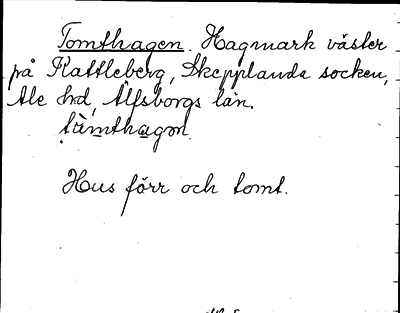 Tomthagen. Hagmark väster
på Kattleberg, Skepplanda socken,
Ale hd, Älfsborgs län.
tòmthagən.
Hus förr och tomt.